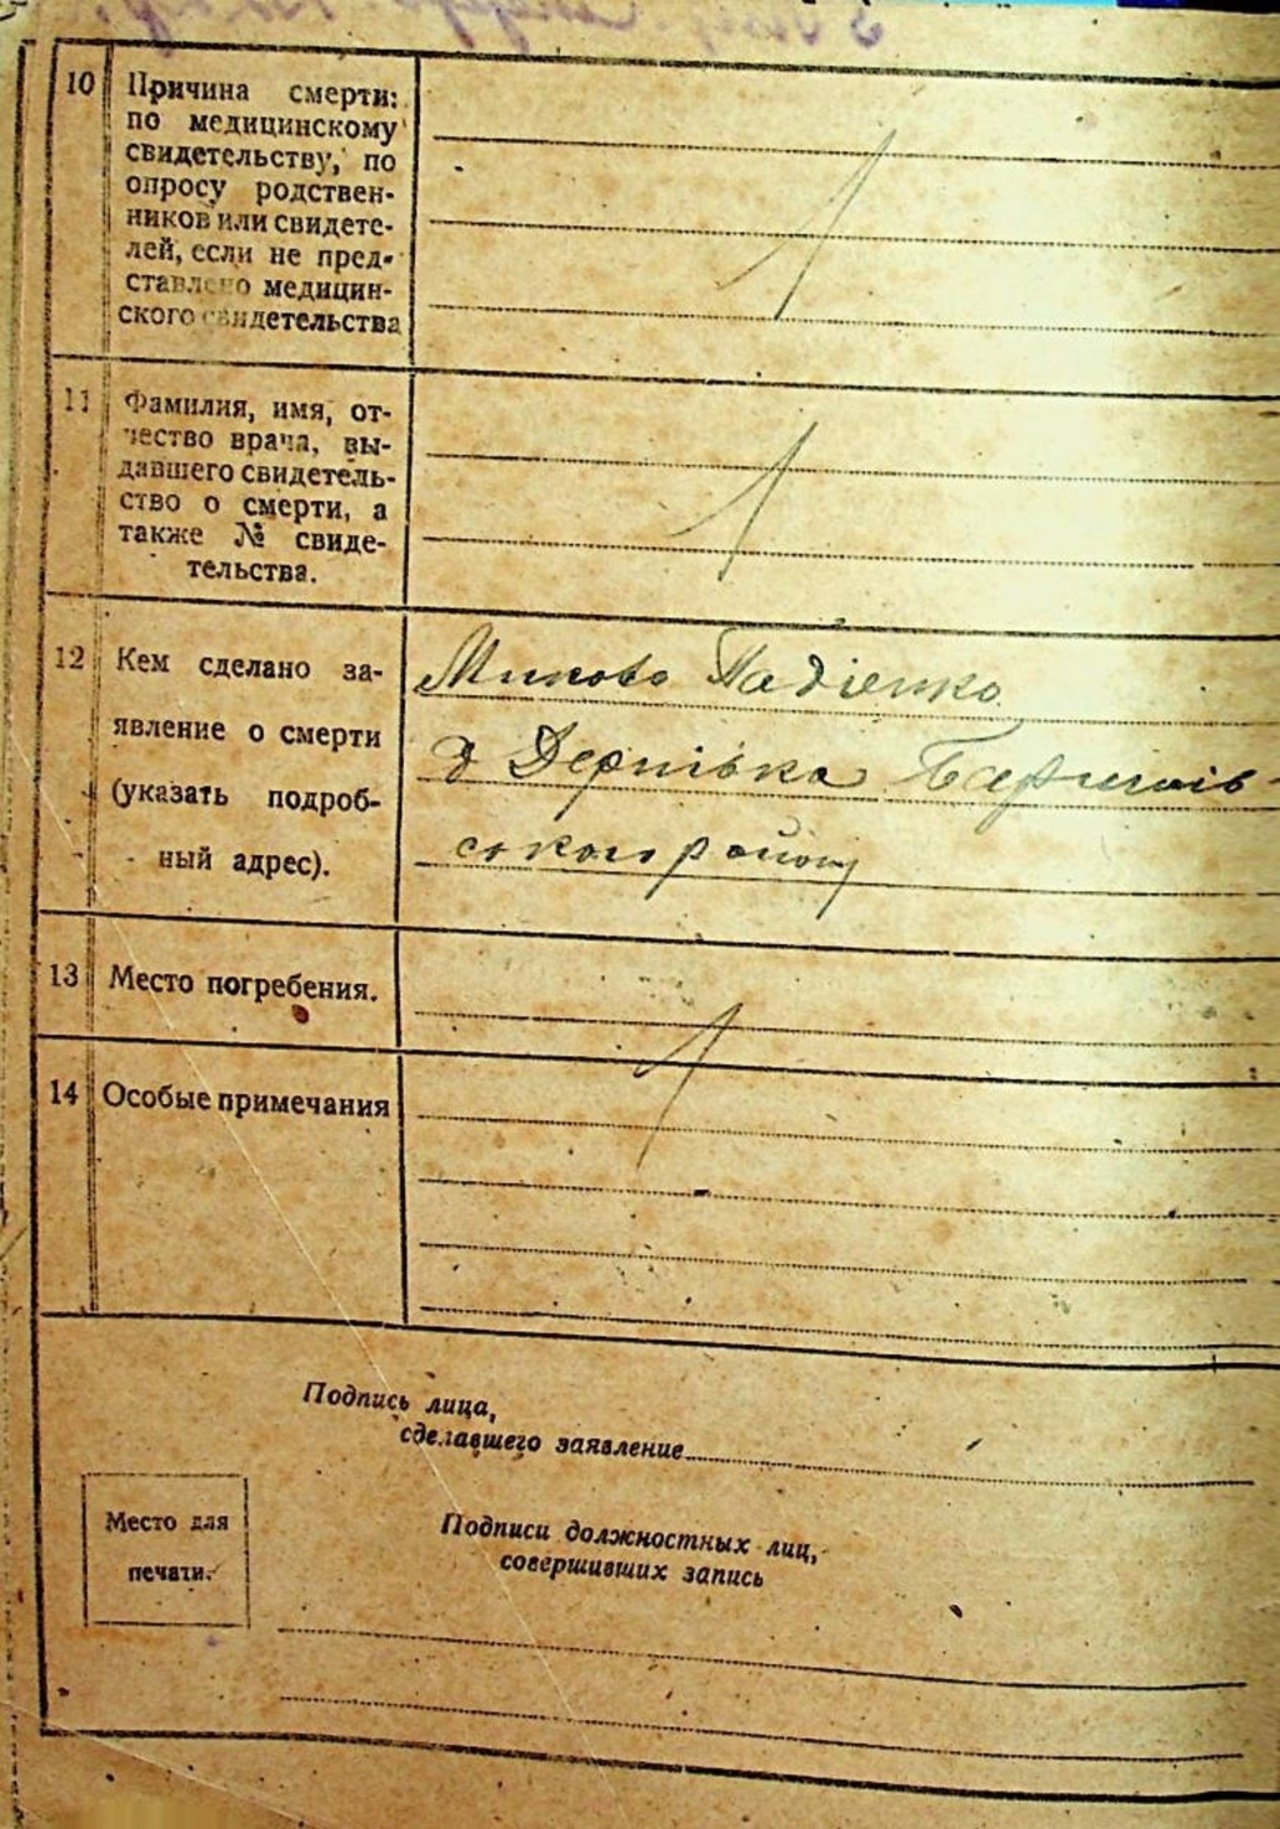 10 Причина смерти:
по медицинскому
свидетельству, по
опросу родствен-
ников или свидете-
лей, если не пред-
ставлено медицин-
ского свидетельства
11 Фамилия, имя, от-
чество врача, вы-
давшего свидетель-
ство о смерти, а
также № свиде-
тельства.
12 Кем сделано за-
явление о смерти
(указать подроб-
ный адрес).
Микола
д Дернівка Баришів-
ського району
13 Место погребения.
14 Особые примечания
Подпись лица,
сделавшего заявление
Место для
печати.
Подписи должностных лиц,
совершивших запись